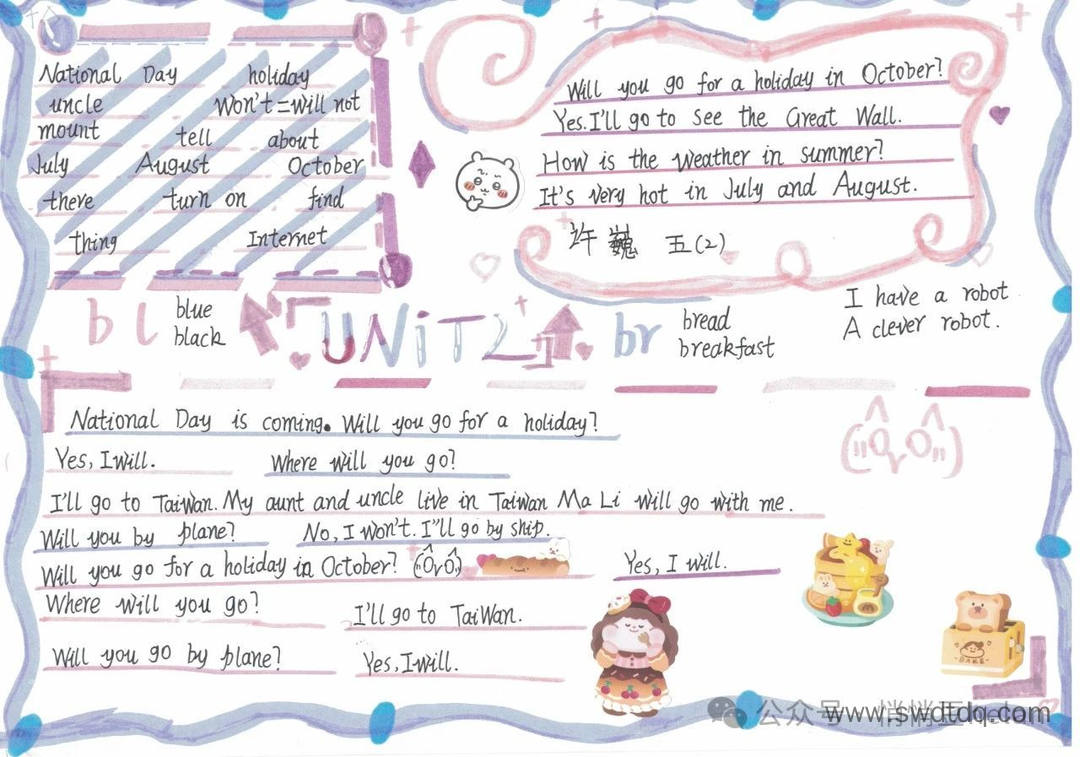 National Day holiday
uncle Won't=will not
mount tell about
July August October
there turn on find
thing Internet
Will you go for a holiday in October?
Yes.I'll go to see the Great Wall.
How is the weather in summer?
It's very hot in July and August.
许巍 五(2)
bl blue
black
UNiT2
br bread
breakfast
I have a robot
A clever robot.
National Day is coming. Will you go for a holiday?
Yes, I will. Where will you go?
I'll go to TaiWan. My aunt and uncle live in Taiwan Ma Li will go with me.
Will you by plane? No, I won't. I''ll go by ship.
Will you go for a holiday in October? Yes, I will.
Where will you go? I'll go to TaiWan.
Will you go by plane? Yes, I will.
公众号
www.swdtdq.com